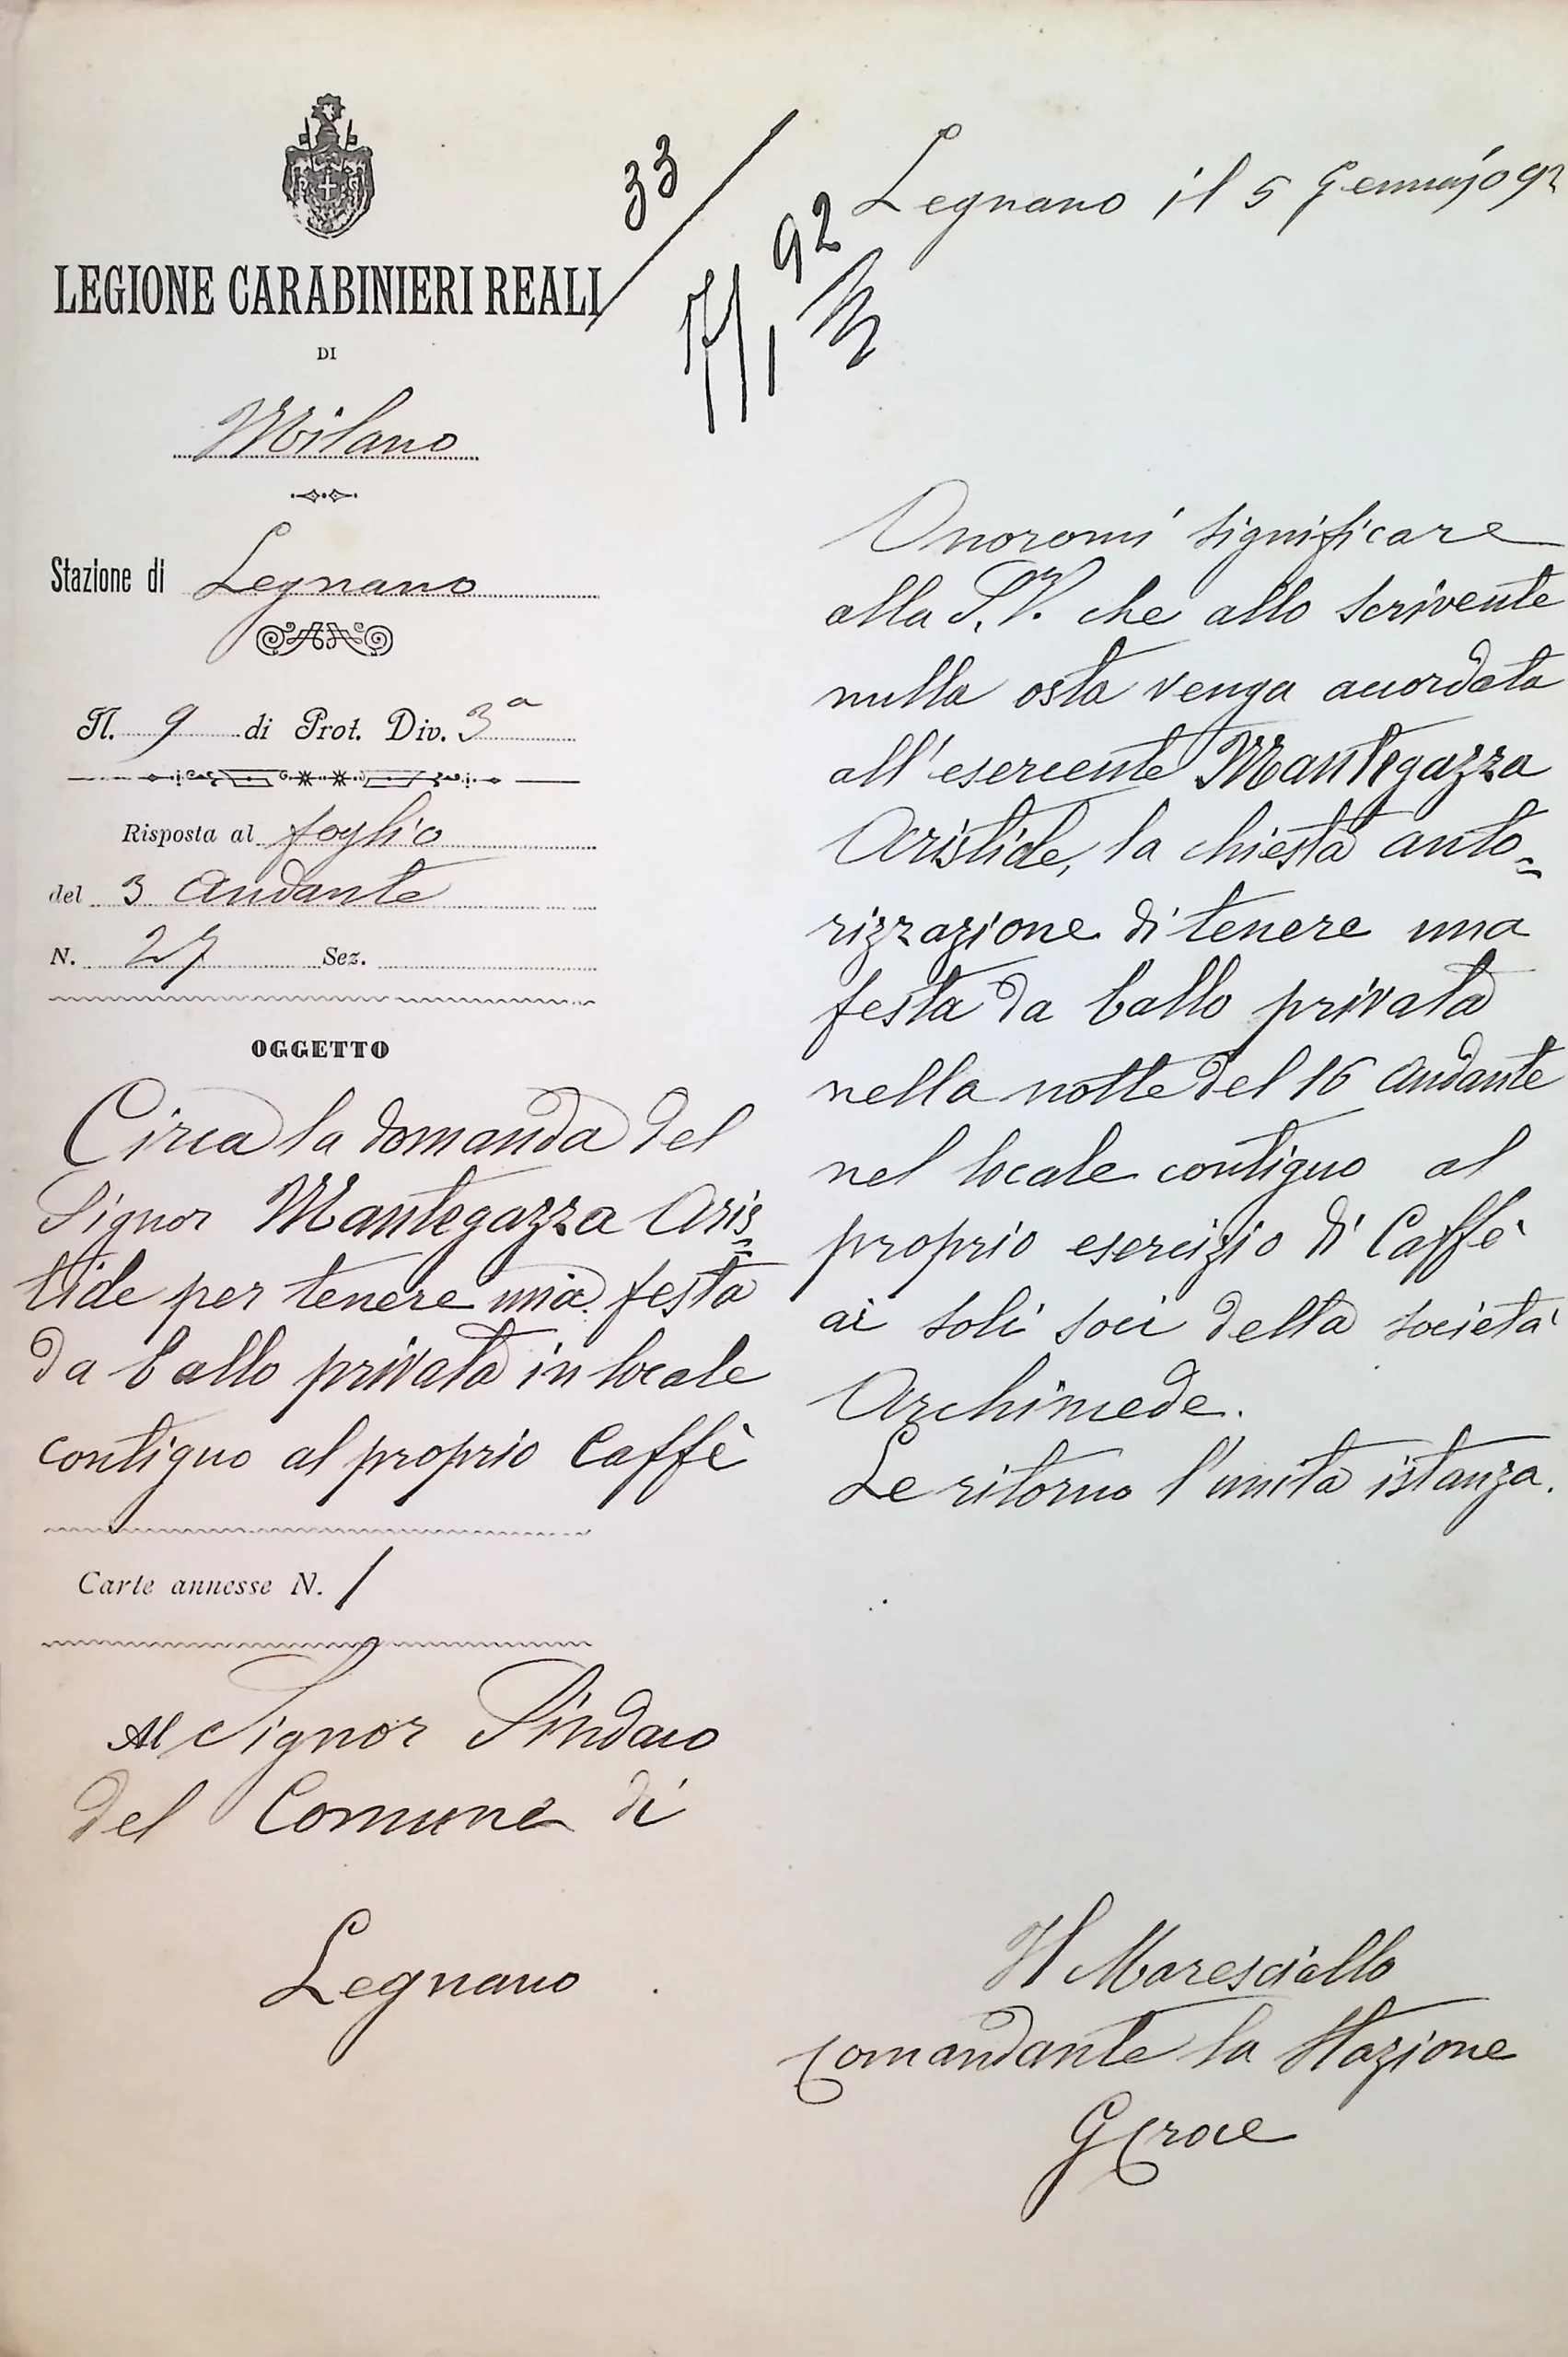 LEGIONE CARABINIERI REALI
DI
Milano
Stazione di Legnano
N. 9 di Prot. Div. 3ª
Risposta al foglio
del 3 andante
N. 27 Sez.
OGGETTO
Circa la domanda del
Signor Mantegazza Aris=
tide per tenere una festa
da ballo privata in locale
contiguo al proprio Caffè
Carte annesse N. 1
Al Signor Sindaco
del Comune di
Legnano
33
92
Legnano il 5 Gennajo 92
Onoromi significare
alla S.V. che allo scrivente
nulla osta venga accordata
all'esercente Mantegazza
Aristide, la chiesta auto=
rizzazione di tenere una
festa da ballo privata
nella notte del 16 andante
nel locale contiguo al
proprio esercizio di Caffè
ai soli soci della società
Archimede.
Le ritorno l'unita istanza.
Il Maresciallo
Comandante la Stazione
G Croce